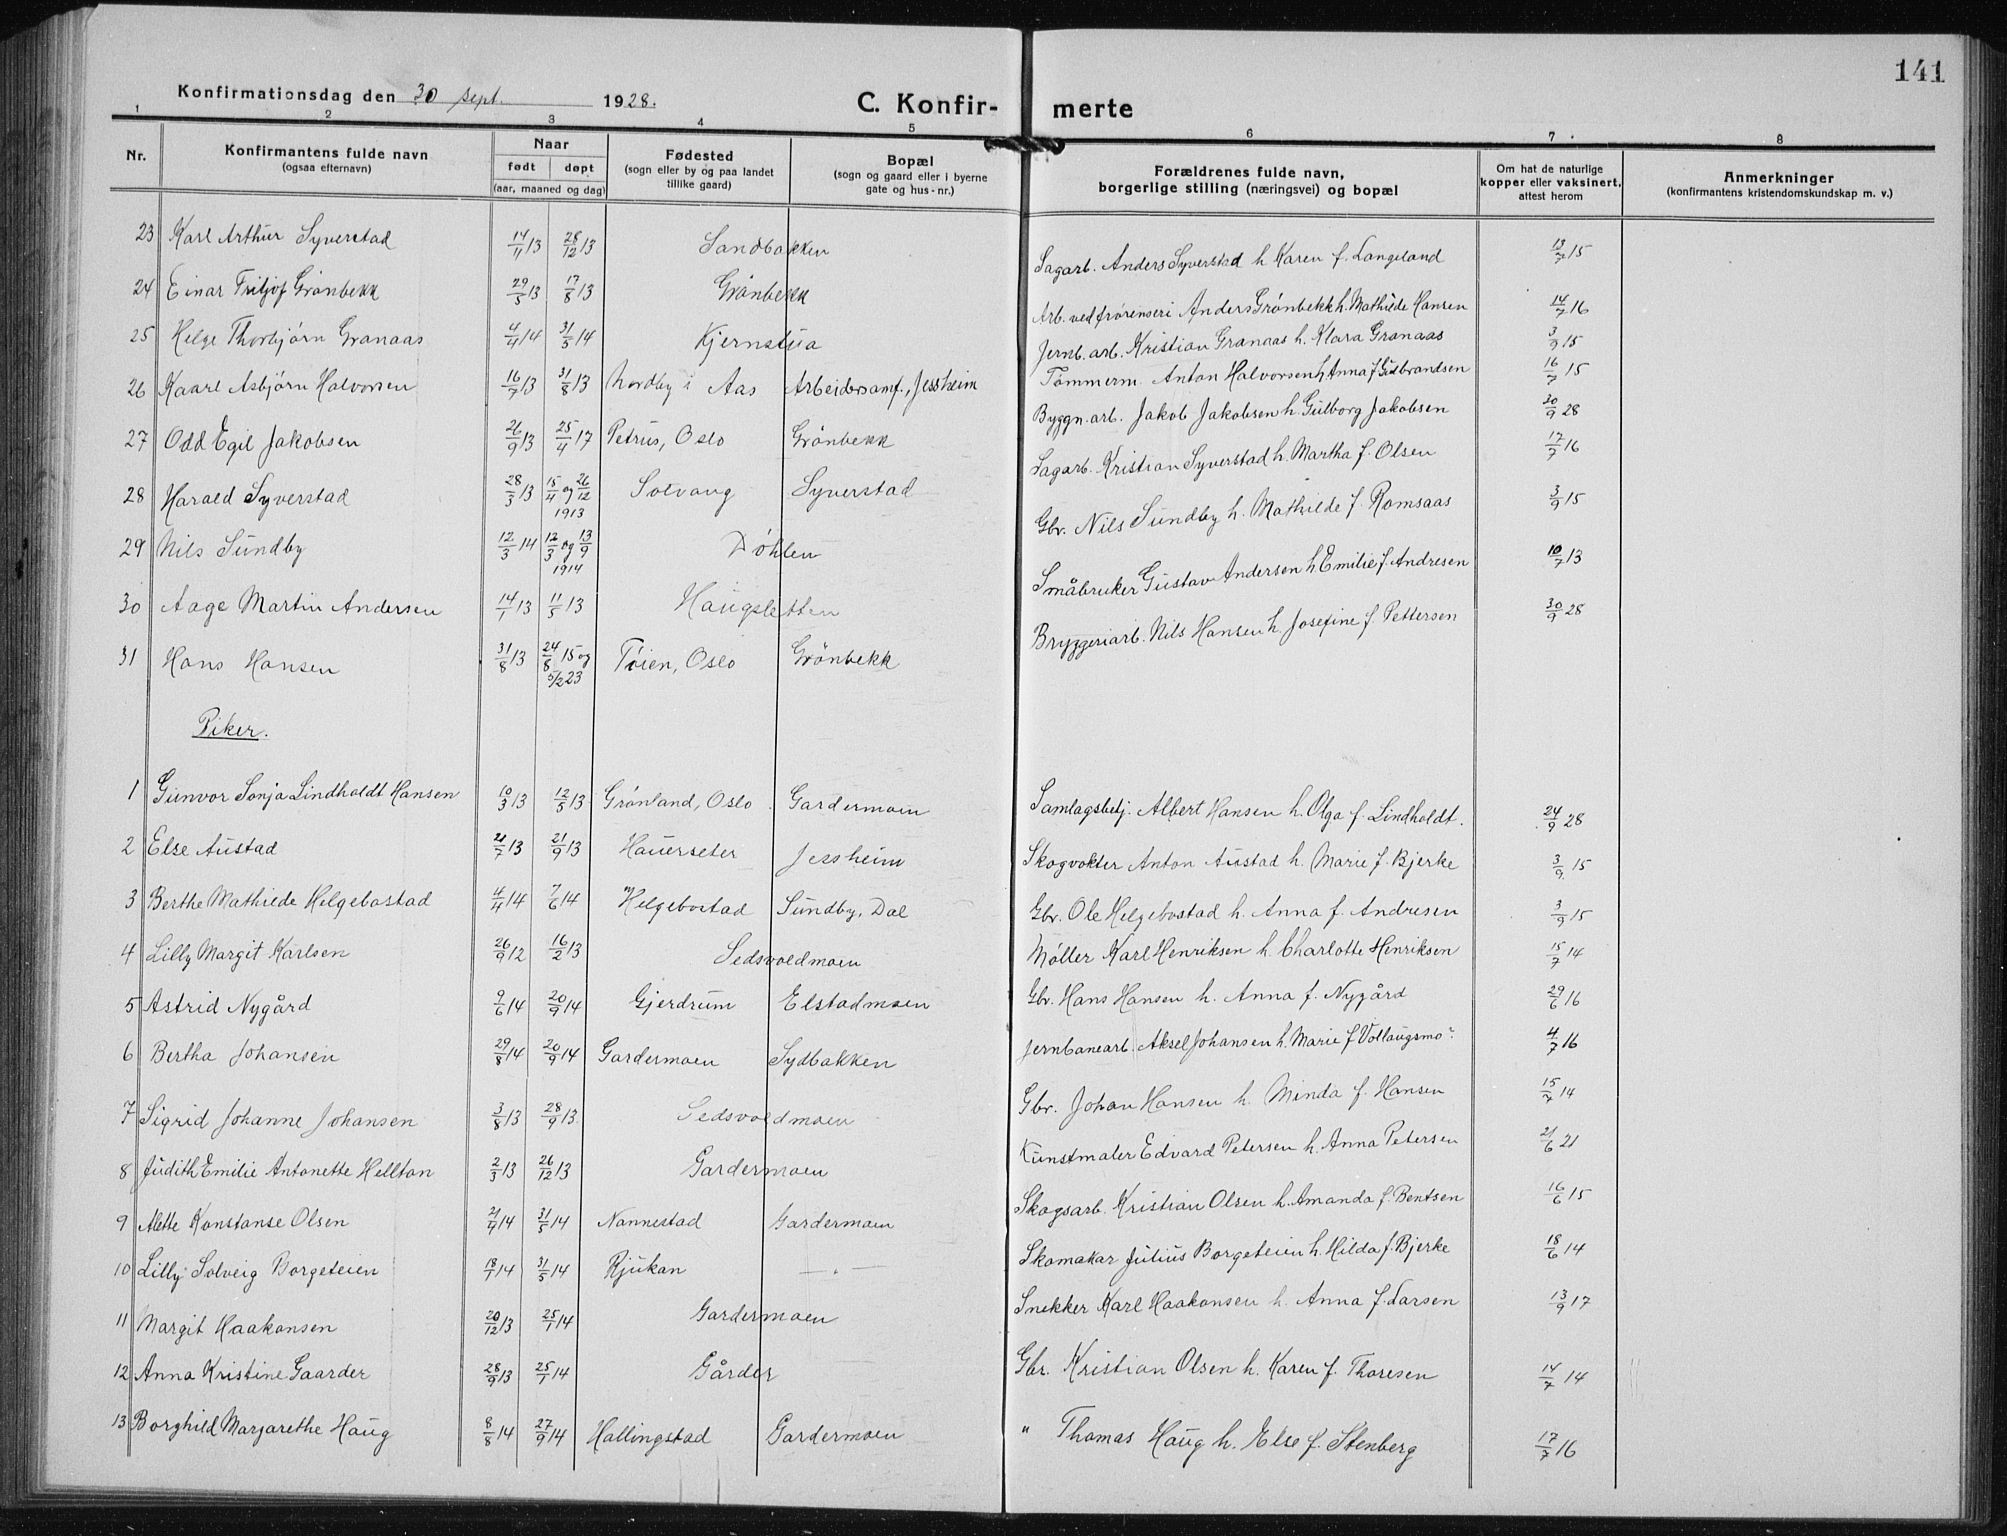 141
Konfirmationsdag den 30 sept. 1928.
C. Konfir- merte
1 2 3 4 5 6 7. 8
Nr. Konfirmantens fulde navn (ogsaa efternavn) Naar født døpt (aar, maaned og dag) Fødested (sogn eller by og paa landet tillike gaard) Bopæl (sogn og gaard eller i byerne gate og hus-nr.) Forældrenes fulde navn, borgerlige stilling (næringsvei) og bopæl Om hat de naturlige kopper eller vaksinert, attest herom Anmerkninger (konfirmantens kristendomskundskap m. v.)
23 Karl Arthur Syverstad 14/11 13 28/12 13 Sandbakken Sagarb. Anders Syverstad h. Karen f. Langeland 13/7 15
24 Einar Fritjof Grønbekk 29/5 13 17/8 13 Grønbekk Arb. ved frørenseri Anders Grønbekk h. Mathilde Hansen 14/7 16
25 Helge Thorbjørn Granaas 4/4 14 31/5 14 Kjernstua Jernb. arb. Kristian Granaas h. Klara Granaas 3/9 15
26 Kaare Asbjørn Halvorsen 16/7 13 31/8 13 Nordby i Aas Arbeidersamf., Jessheim Tømmerm. Anton Halvorsen h. Anna f. Gulbrandsen 16/7 15
27 Odd Egil Jakobsen 26/9 13 25/4 17 Petrus, Oslo Grønbekk Byggn. arb. Jakob Jakobsen h. Gulborg Jakobsen 20/9 28
28 Harald Syverstad 28/3 13 15/4 og 26/12 1913 Solvang Syverstad Sagarb. Kristian Syverstad h. Martha f. Olsen 17/7 16
29 Nils Sundby 12/3 14 12/3 og 13/9 1914 Døhlen Gbr. Nils Sundby h. Mathilde f. Romsaas 3/9 15
30 Aage Martin Andersen 14/1 13 11/5 13 Haugsletten Småbruker Gustav Andersen h. Emilie f. Andresen 10/7 13
31 Hans Hansen 31/8 13 24/8 15 og 5/2 23 Tøien, Oslo Grønbekk Bryggeriarb. Nils Hansen h. Josefine f. Pettersen 30/9 28
Piker.
1 Gunvor Sonja Lindholdt Hansen 10/3 13 12/5 13 Grønland, Oslo. Gardermoen Samlagsbetj. Albert Hansen h. Olga f. Lindholdt. 24/9 28
2 Else Austad 21/7 13 21/9 13 Hauerseter Jessheim Skogvokter Anton Austad h. Marie f. Bjerke 3/9 15
3 Berthe Mathilde Helgebostad 4/4 14 7/6 14 Helgebostad Sundby, Dal Gbr. Ole Helgebostad h. Anna f. Andresen 3/9 15
4 Lilly Margit Karlsen 26/9 12 16/2 13 Sedsvoldmoen Møller Karl Henriksen h. Charlotte Henriksen 15/7 14
5 Astrid Nygård 9/6 14 20/9 14 Gjerdrum Elstadmoen Gbr. Hans Hansen h. Anna f. Nygård 29/6 16
6 Bertha Johansen 29/8 14 20/9 14 Gardermoen Sydbakken Jernbanearb. Aksel Johansen h. Marie f. Vollaugsmo 4/7 16
7 Sigrid Johanne Johansen 3/8 13 28/9 13 Sedsvoldmoen Gbr. Johan Hansen h. Minda f. Hansen 15/7 14
8 Judith Emilie Antonette Hellton 2/3 13 26/12 13 Gardermoen Kunstmaler Edvard Petersen h. Anna Petersen 21/6 21
9 Alette Konstanse Olsen 21/4 14 31/5 14 Nannestad Gardermoen Skogsarb. Kristian Olsen h. Amanda f. Bentsen 16/6 15
10 Lilly Solveig Borgeteien 18/1 14 31/5 14 Rjukan — . — Skomakar Julius Borgeteien h. Hilda f. Bjerke 18/6 14
11 Margit Haakonsen 20/12 13 25/1 14 Gardermoen Snekker Karl Haakonsen h. Anna f. Larsen 13/9 17
12 Anna Kristine Gaarder 28/9 13 25/1 14 Gårder Gbr. Kristian Olsen h. Karen f. Thoresen 14/7 14
13 Borghild Margarethe Haug 8/8 14 27/9 14 Hallingstad Gardermoen " Thomas Haug h. Else f. Stenberg 17/7 16